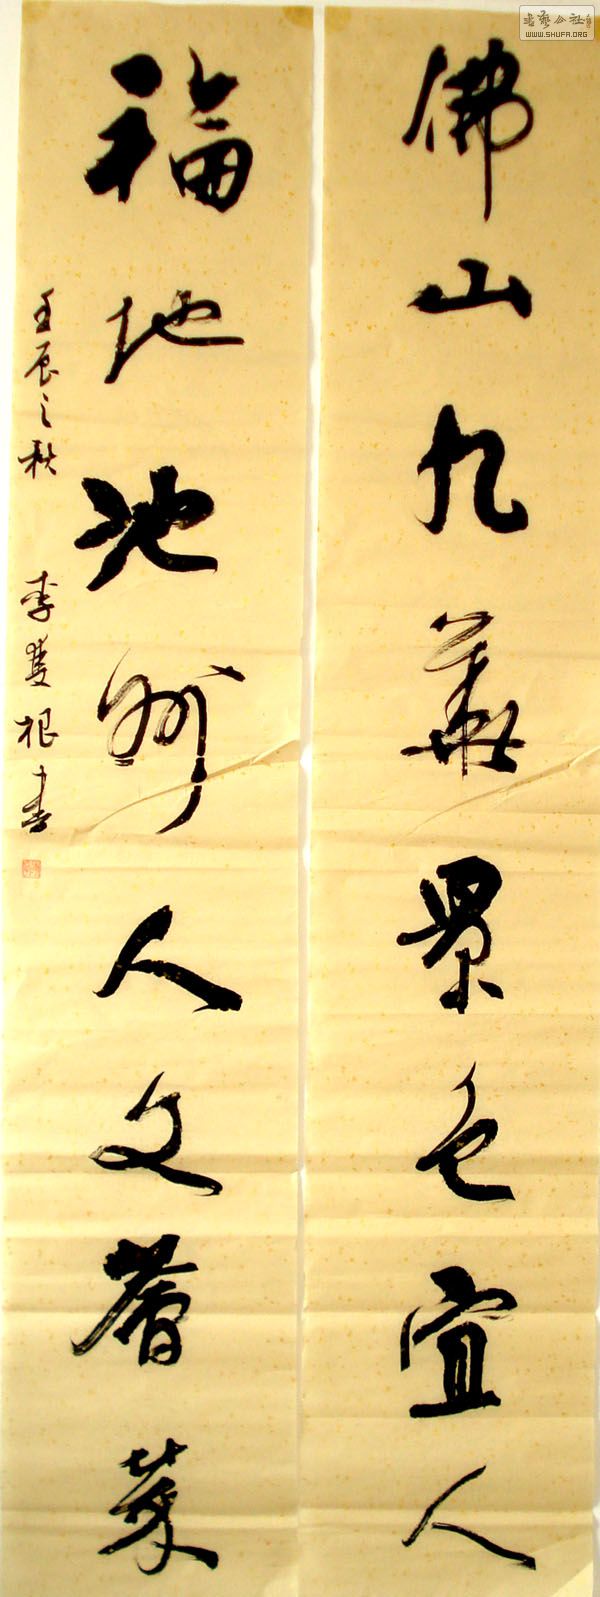 佛山九華景色宜人
福地池州人文薈萃
壬辰之秋 李雙根書
书藝公社
WWW.SHUFA.ORG